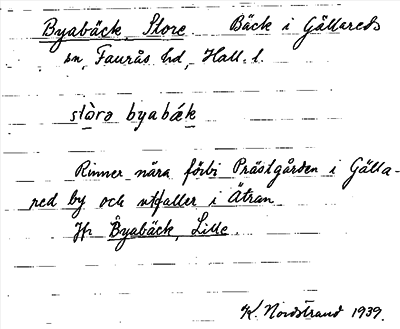 Byabäck, Store Bäck i Gällareds
sn, Faurås hd, Hall. l.
stòra byabǽk
Rinner nära förbi Prästgården i Gälla-
red by och utfaller i Ätran.
Jfr Byabäck, Lille.
K. Nordstrand 1939.